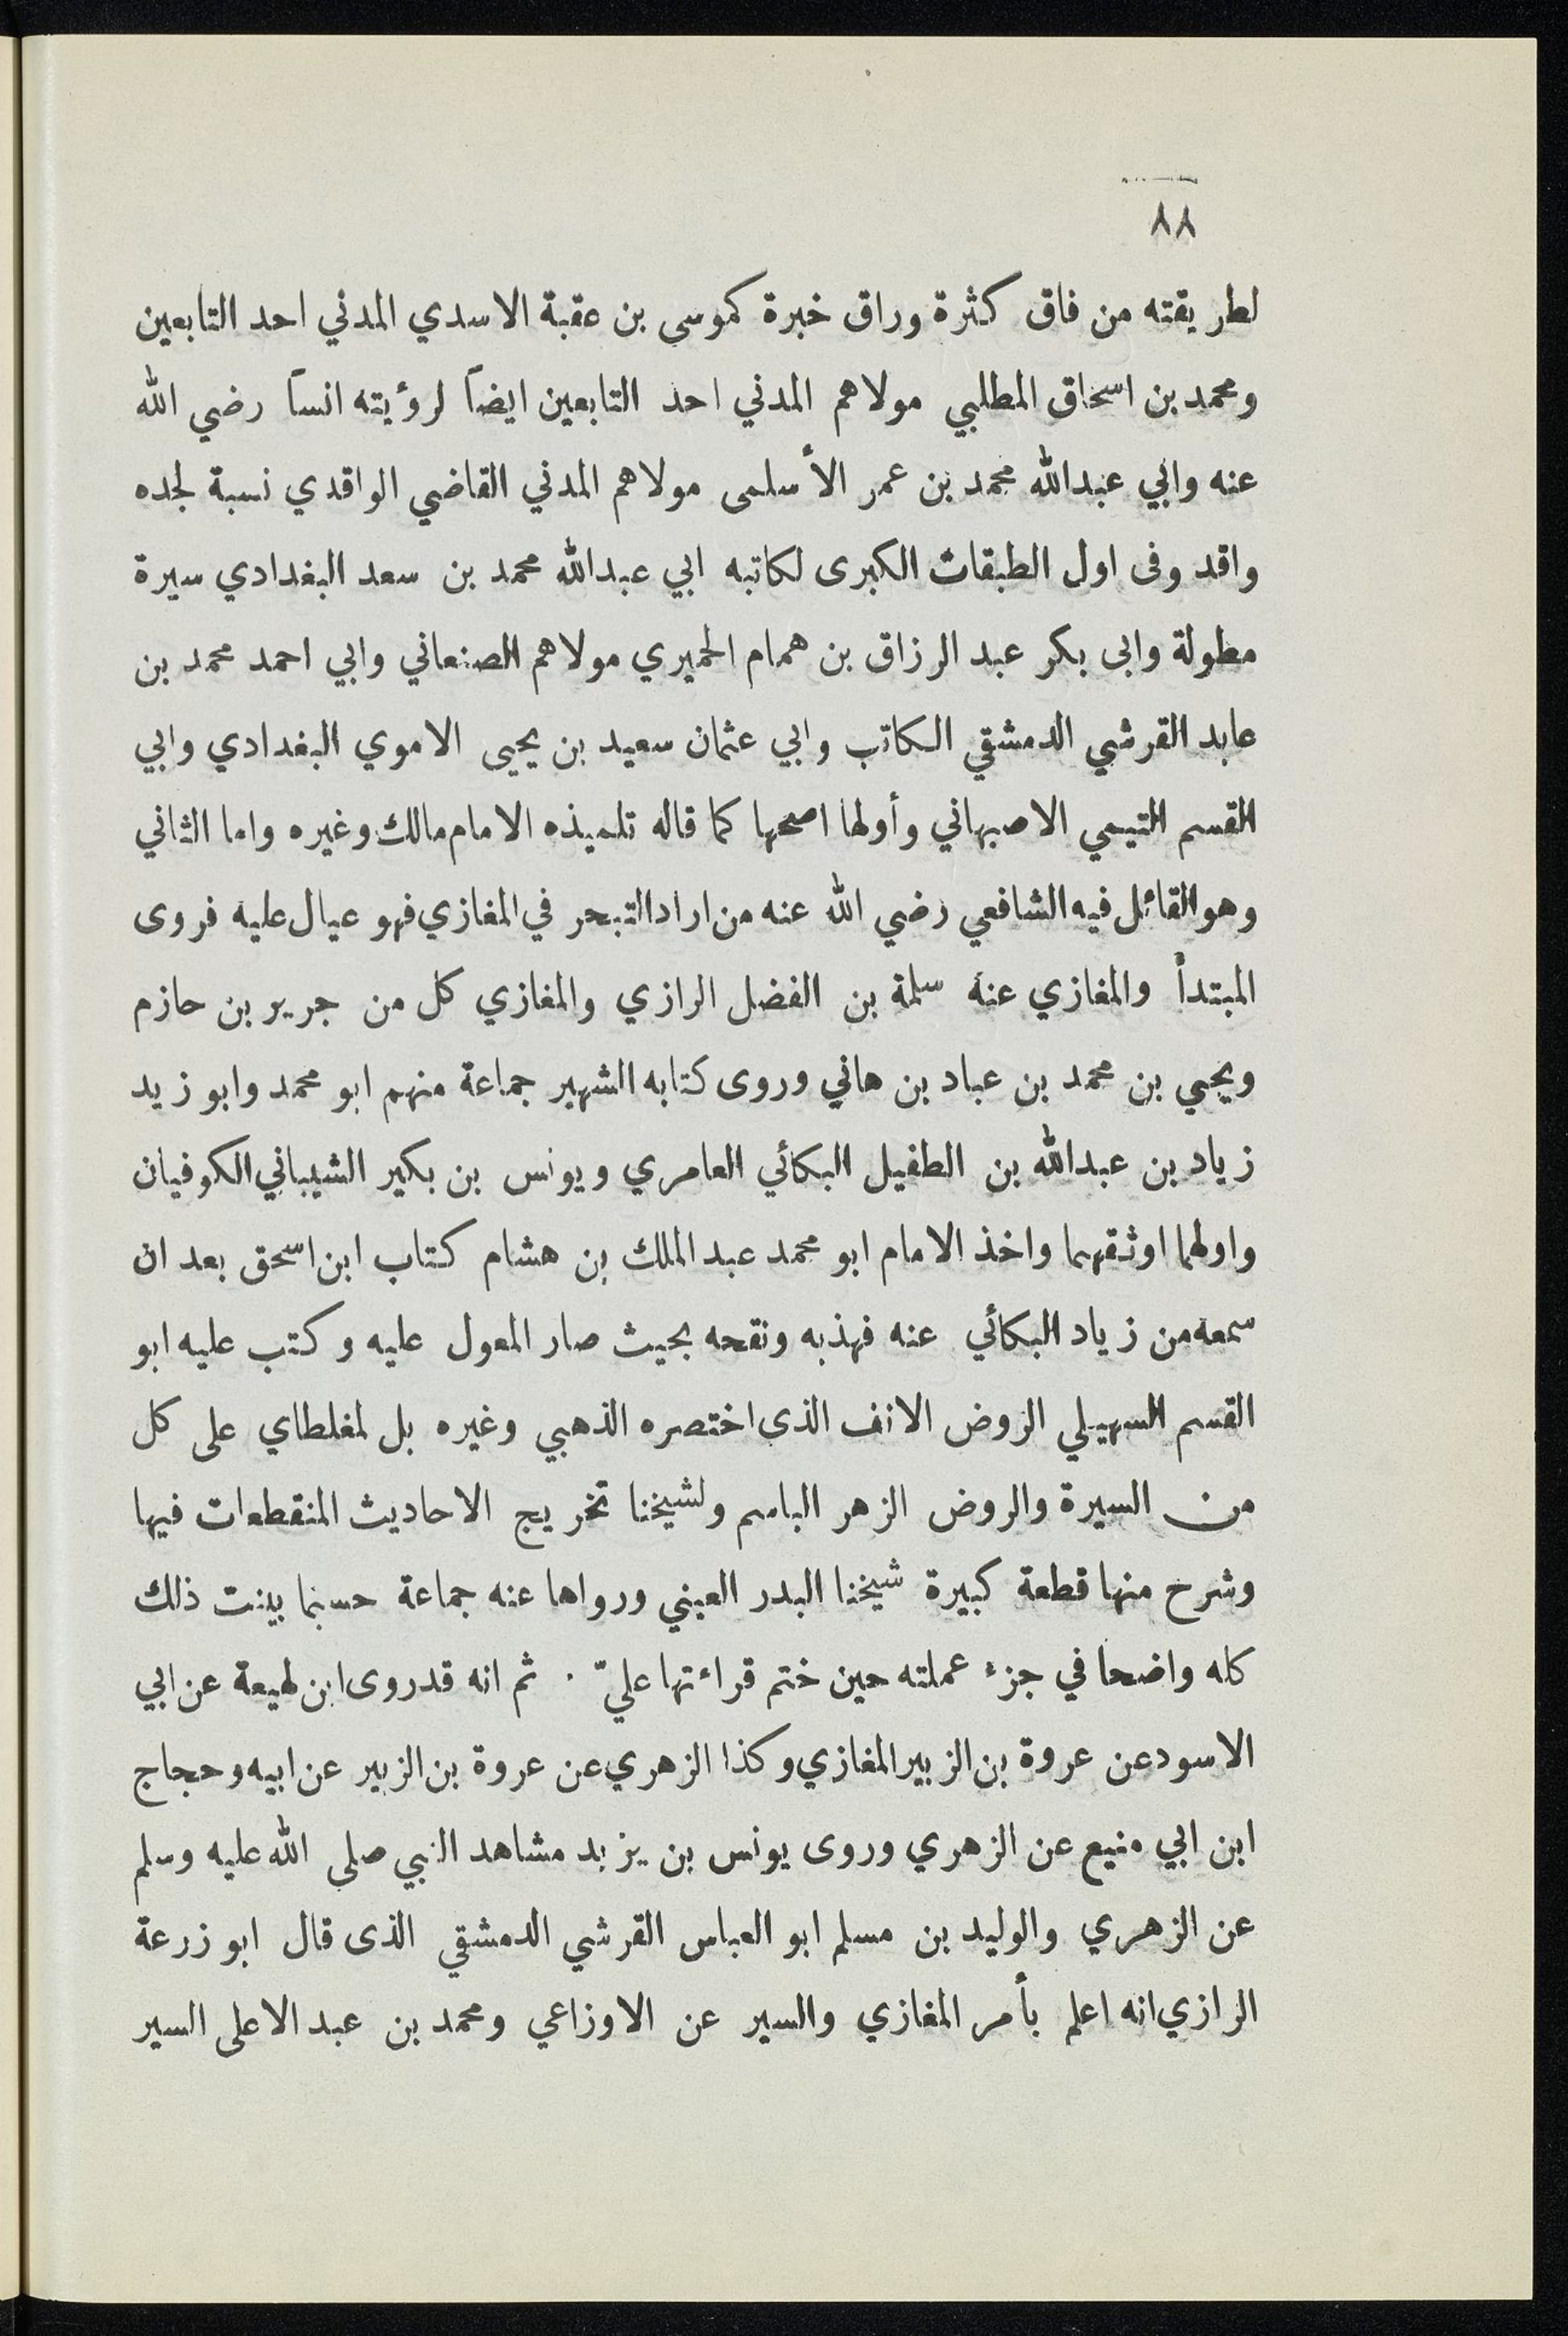 ٨٨
لطريقته من فاق كثرة وراق خبرة كموسى بن عقبة الاسدي المدني احد التابعين
ومحمد بن اسحاق المطلبي مولاهم المدني احد التابعين ايضاً لرؤيته انساً رضي الله
عنه وابي عبدالله محمد بن عمر الأسلمى مولاهم المدني القاضي الواقدي نسبة لجده
واقد وفى اول الطبقات الكبرى لكاتبه ابي عبدالله محمد بن سعد البغدادي سيرة
مطولة وابى بكر عبد الرزاق بن همام الحميري مولاهم الصنعاني وابي احمد محمد بن
عابد القرشي الدمشقي الكاتب وابي عثمان سعيد بن يحيى الاموي البغدادي وابي
القسم التيمي الاصبهاني وأولها اصحها كما قاله تلميذه الامام مالك وغيره واما الثاني
وهو القائل فيه الشافعي رضي الله عنه من اراد التبحر في المغازي فهو عيال عليه فروى
المبتدأ والمغازي عنه سلمة بن الفضل الرازي والمغازي كل من جرير بن حازم
ويحيي بن محمد بن عباد بن هاني وروى كتابه الشهير جماعة منهم ابو محمد وابو زيد
زياد بن عبدالله بن الطفيل البكائي العامري ويونس بن بكير الشيباني الكوفيان
واولهما اوثقهما واخذ الامام ابو محمد عبد الملك بن هشام كتاب ابن اسحق بعد ان
سمعه من زياد البكائي عنه فهذبه ونقحه بحيث صار المعول عليه وكتب عليه ابو
القسم السهيلي الروض الانف الذى اختصره الذهبي وغيره بل لمغلطاي على كل
من السيرة والروض الزهر الباسم ولشيخنا تخريج الاحاديث المنقطعات فيها
وشرح منها قطعة كبيرة شيخنا البدر العيني ورواها عنه جماعة حسبما بينت ذلك
كله واضحا في جزء عملته حين ختم قراءتها عليّ . ثم انه قد روى ابن لهيعة عن ابي
الاسود عن عروة بن الزبير المغازي وكذا الزهري عن عروة بن الزبير عن ابيه وحجاج
ابن ابي منيع عن الزهري وروى يونس بن يزيد مشاهد النبي صلى الله عليه وسلم
عن الزهري والوليد بن مسلم ابو العباس القرشي الدمشقي الذى قال ابو زرعة
الرازي انه اعلم بأمر المغازي والسير عن الاوزاعي ومحمد بن عبد الاعلى السير